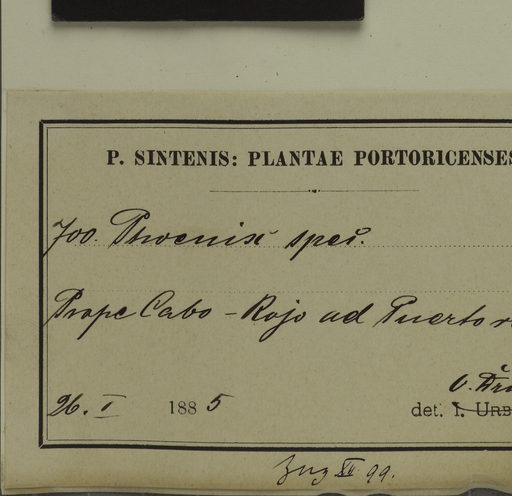 P. SINTENIS: PLANTAE PORTORICENSES
700. Phoenix spec.
Prope Cabo-Rojo ad Puerto
26. I 1885
det. I. URB
99.